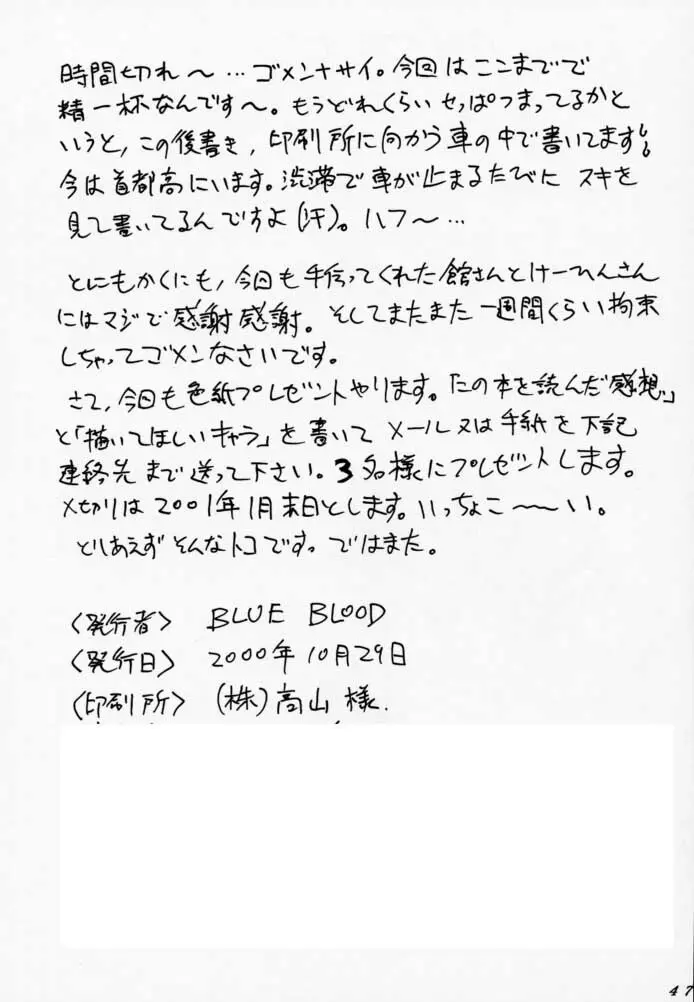 時間切れ〜…ゴメンナサイ。今回はここまでで
精一杯なんです〜。もうどれくらいセッぱつまってるかと
いうと,この後書き,印刷所に向かう車の中で書いてます!。
今は首都高にいます。渋滞で車が止まるたびに スキを
見て書いてるんですよ(汗)。ハフ〜…
とにもかくにも,今回も手伝ってくれた館さんとけーひんさん
にはマジで感謝感謝。そしてまたまた一週間くらい拘束
しちゃってゴメンなさいです。
さて,今回も色紙プレゼントやります。「この本を読んだ感想」
と「描いてほしいキャラ」を書いて メール又は手紙を下記
連絡先まで送って下さい。3名様にプレゼントします。
〆切りは2001年1月末日とします。いっちょこ〜い。
とりあえずそんなトコです。ではまた。
〈発行者〉 BLUE BLOOD
〈発行日〉 2000年10月29日
〈印刷所〉 (株)高山様.
47